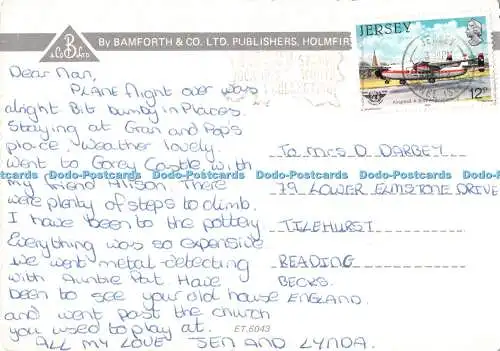 By BAMFORTH & CO. LTD. PUBLISHERS, HOLMFIR
B
& Co LTD
JERSEY
12p
Dear Nan,
PLANE flight over was
alright Bit bumby in Places.
Staying at Gran and Pops
place. Weather lovely.
Went to Gorey Castle with
my friend Alison. There
were plenty of steps to climb.
I have been to the pottery
Everything was so expensive
we went metal-detecting
with Auntie Pat. Have
been to see your old house
and went past the church
you used to play at.
ALL MY LOVE JEN AND LYNDA.
To Mrs D. DARBEY
79 LOWER ELMSTONE DRIVE
TILEHURST
READING
BECKS.
ENGLAND.
ET.6943
Dodo-Postcards Dodo-Postcards Dodo-Postcards Dodo-Postcards Dodo-Postcards Dodo-Postcards